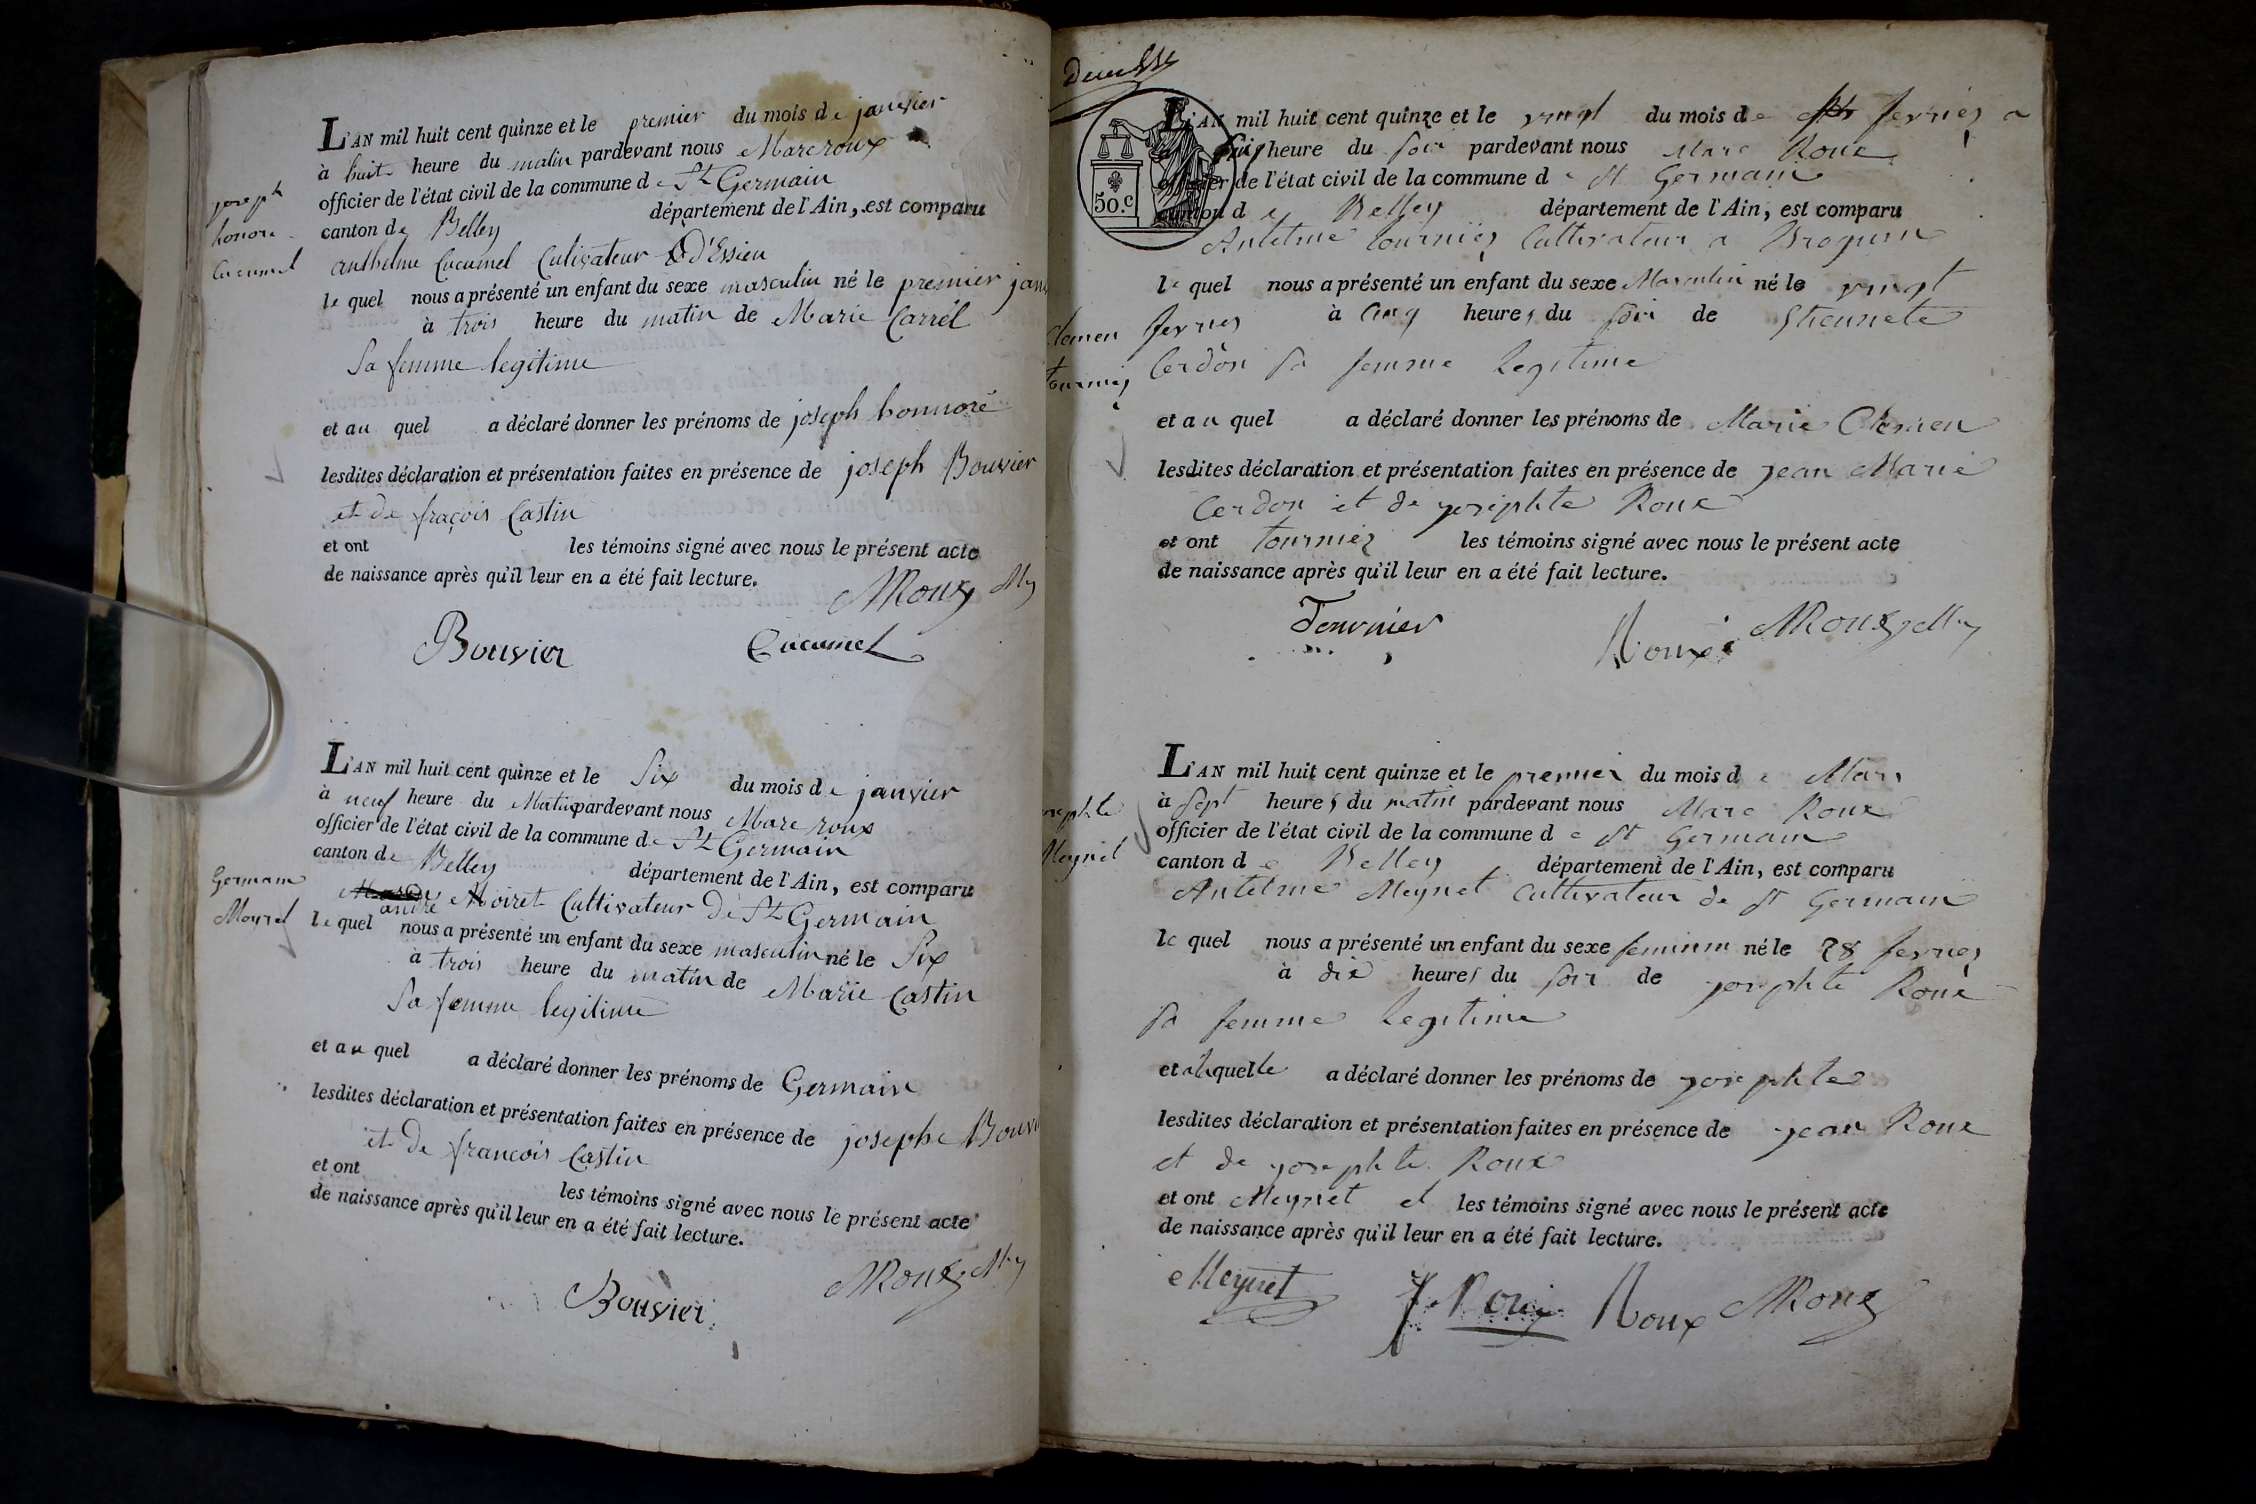 L'AN mil huit cent quinze et le premier du mois de janvier
à huit heure du matin pardevant nous Marc roux
officier de l'état civil de la commune de St Germain
canton de Belley département de l'Ain, est comparu
anthelme Cucumel Cultivateur D'Essieu
le quel nous a présenté un enfant du sexe masculin né le premier jan
à trois heure du matin de Marie Carrel
Sa femme legitime
et au quel a déclaré donner les prénoms de joseph honnoré
lesdites déclaration et présentation faites en présence de joseph Bouvier
et de fraçois Castin
et ont les témoins signé avec nous le présent acte
de naissance après qu'il leur en a été fait lecture.
MRoux My
Bouvier Cucumel
joseph
honore
Cucumel
L'AN mil huit cent quinze et le Six du mois de janvier
à neuf heure du Matin pardevant nous Marc roux
officier de l'état civil de la commune de St Germain
canton de Belley département de l'Ain, est comparu
andré Moiret Cultivateur De St Germain
le quel nous a présenté un enfant du sexe masculin né le Six
à trois heure du matin de Marie Castin
Sa femme legitime
et au quel a déclaré donner les prénoms de Germain
lesdites déclaration et présentation faites en présence de josephe Bouvi
et de francois Castin
et ont les témoins signé avec nous le présent acte
de naissance après qu'il leur en a été fait lecture.
MRoux My
Bouvier
Germain
Moyret
50.c
L'AN mil huit cent quinze et le vingt du mois de fevrier a
heure du soir pardevant nous Marc Roux
officier de l'état civil de la commune de St Germain
canton de Belley département de l'Ain, est comparu
Antelme tournier Cultivateur a Brognin
le quel nous a présenté un enfant du sexe Masculin né le vingt
fevrier à Cinq heures du soir de
Cerdon sa femme legitime
et au quel a déclaré donner les prénoms de Marie Clemen
lesdites déclaration et présentation faites en présence de jean Marie
Cerdon et de josephte Roux
et ont tournier les témoins signé avec nous le présent acte
de naissance après qu'il leur en a été fait lecture.
Tournier
Roux MRoux My
Clemen
tournier
L'AN mil huit cent quinze et le premier du mois de Mars
à sept heures du matin pardevant nous Marc Roux
officier de l'état civil de la commune de St Germain
canton de Belley département de l'Ain, est comparu
Antelme Meynet Cultivateur de St Germain
le quel nous a présenté un enfant du sexe feminin né le 28 fevrier
à dix heures du soir de josephte Roux
sa femme Legitime
et à laquelle a déclaré donner les prénoms de josephte
lesdites déclaration et présentation faites en présence de jean Roux
et de josephte Roux
et ont Meynet et les témoins signé avec nous le présent acte
de naissance après qu'il leur en a été fait lecture.
Meynet J. Roux Roux MRoux
osephte
Meynet